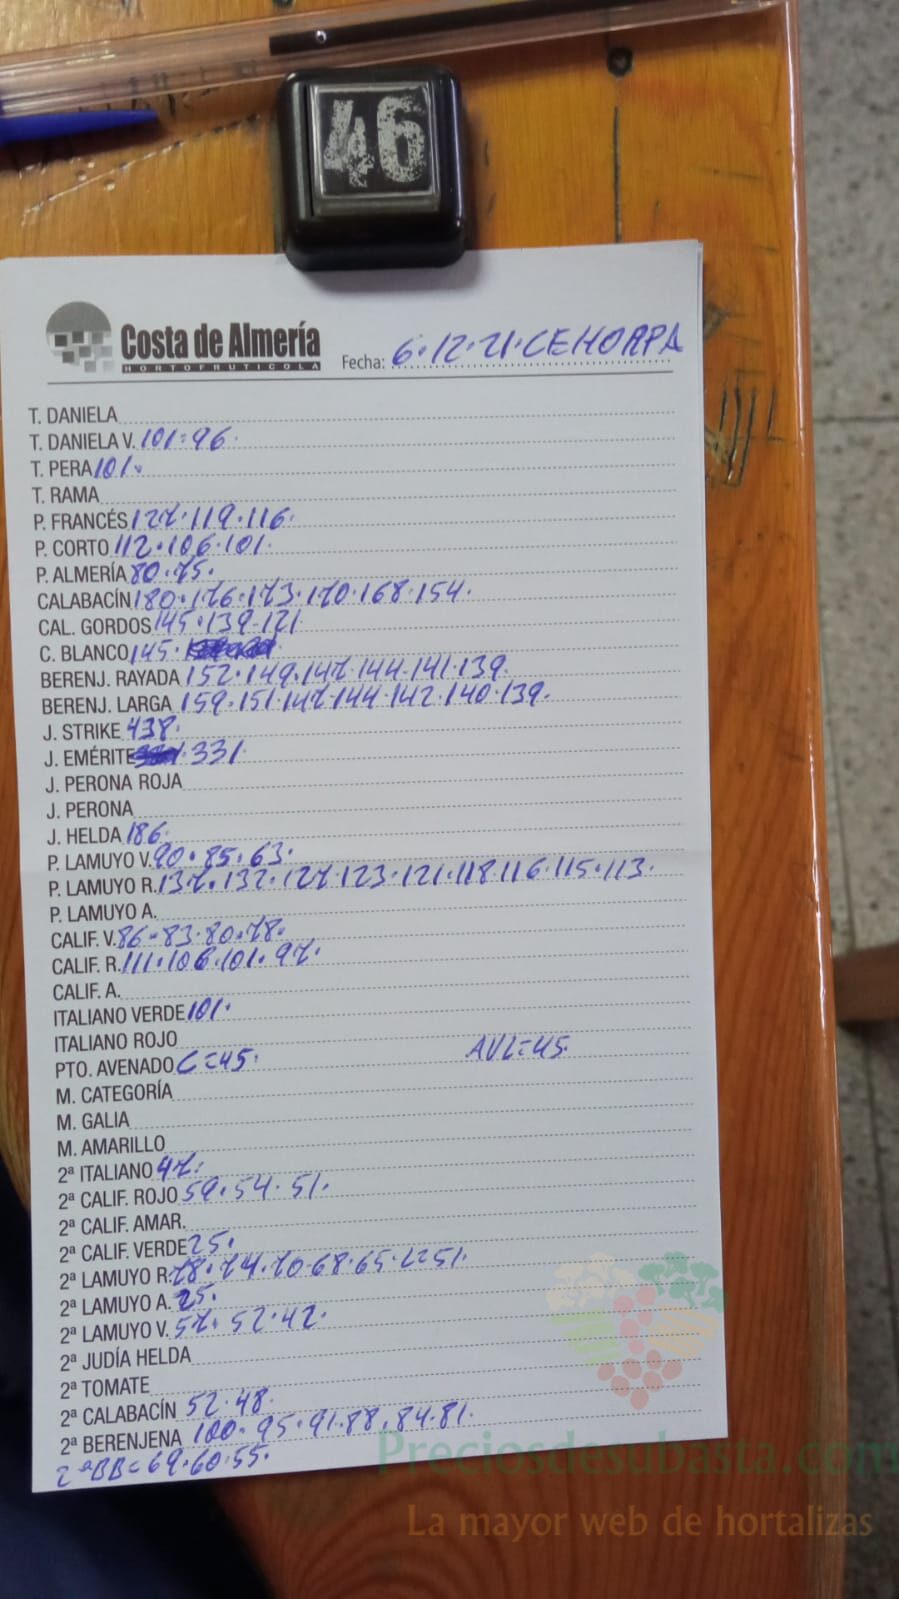 46
Costa de Almería
HORTOFRUTICOLA
Fecha: 6.12.21.CEHORPA
T. DANIELA
T. DANIELA V. 101=96.
T. PERA 101.
T. RAMA
P. FRANCÉS 127.119.116.
P. CORTO 112.106.101.
P. ALMERÍA 80.75.
CALABACÍN 180.176.173.170.168.154.
CAL. GORDOS 145.139.121
C. BLANCO 145.
BERENJ. RAYADA 152.149.147.144.141.139.
BERENJ. LARGA 159.151.147.144.142.140.139.
J. STRIKE 438.
J. EMÉRITE 331
J. PERONA ROJA
J. PERONA
J. HELDA 186.
P. LAMUYO V. 90.85.63.
P. LAMUYO R. 137.132.127.123.121.118.116.115.113.
P. LAMUYO A.
CALIF. V. 86.83.80.78.
CALIF. R. 111.106.101.97.
CALIF. A.
ITALIANO VERDE 101.
ITALIANO ROJO
PTO. AVENADO C=45. AVL=45.
M. CATEGORÍA
M. GALIA
M. AMARILLO
2ª ITALIANO 47.
2ª CALIF. ROJO 59.54.51.
2ª CALIF. AMAR.
2ª CALIF. VERDE 25.
2ª LAMUYO R. 78.74.70.68.65.L=51.
2ª LAMUYO A. 25.
2ª LAMUYO V. 57.52.42.
2ª JUDÍA HELDA
2ª TOMATE
2ª CALABACÍN 52.48.
2ª BERENJENA 100.95.91.88.84.81.
2ªBB=69.60.55.
Preciosdesubasta.com
La mayor web de hortalizas